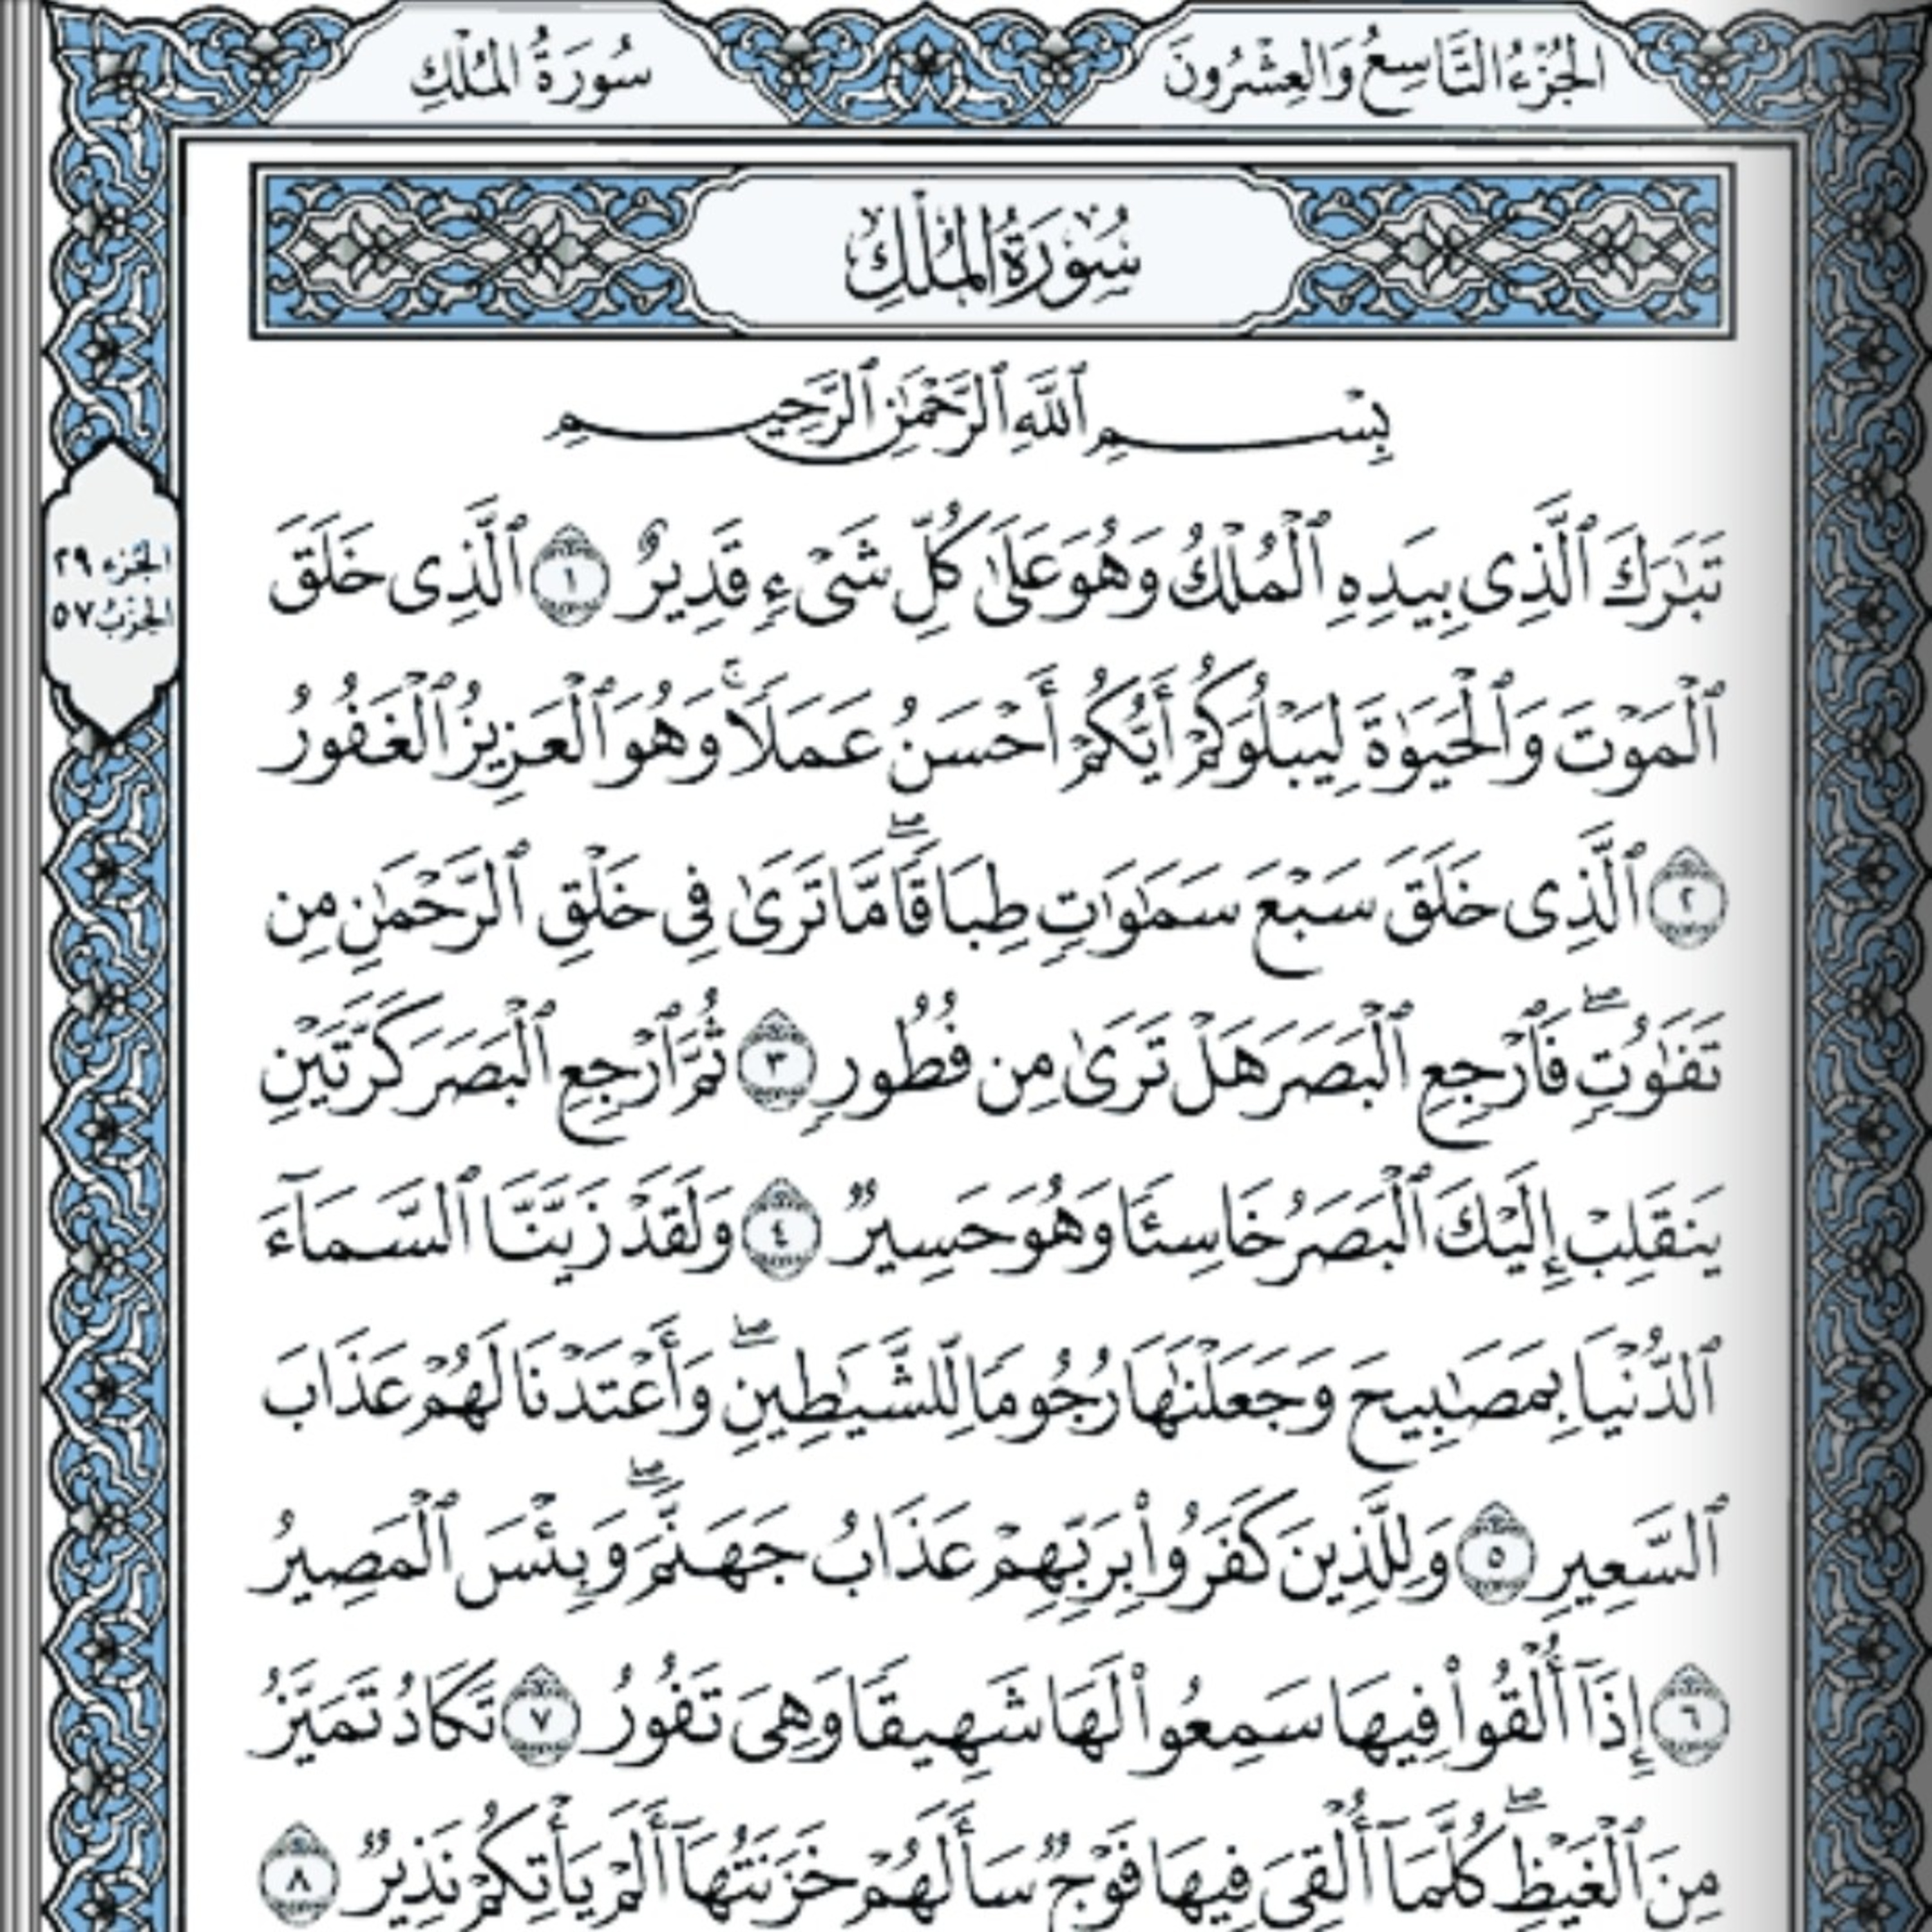 الجُزْءُ التَّاسِعُ وَالعِشْرُونَ
سُورَةُ المُلْكِ
سُورَةُ المُلْكِ
بِسْمِ ٱللَّهِ ٱلرَّحْمَٰنِ ٱلرَّحِيمِ
تَبَٰرَكَ ٱلَّذِى بِيَدِهِ ٱلْمُلْكُ وَهُوَ عَلَىٰ كُلِّ شَىْءٍ قَدِيرٌ ١ ٱلَّذِى خَلَقَ
ٱلْمَوْتَ وَٱلْحَيَوٰةَ لِيَبْلُوَكُمْ أَيُّكُمْ أَحْسَنُ عَمَلًا ۚ وَهُوَ ٱلْعَزِيزُ ٱلْغَفُورُ
٢ ٱلَّذِى خَلَقَ سَبْعَ سَمَٰوَٰتٍ طِبَاقًا ۖ مَّا تَرَىٰ فِى خَلْقِ ٱلرَّحْمَٰنِ مِن
تَفَٰوُتٍ ۖ فَٱرْجِعِ ٱلْبَصَرَ هَلْ تَرَىٰ مِن فُطُورٍ ٣ ثُمَّ ٱرْجِعِ ٱلْبَصَرَ كَرَّتَيْنِ
يَنقَلِبْ إِلَيْكَ ٱلْبَصَرُ خَاسِئًا وَهُوَ حَسِيرٌ ٤ وَلَقَدْ زَيَّنَّا ٱلسَّمَآءَ
ٱلدُّنْيَا بِمَصَٰبِيحَ وَجَعَلْنَٰهَا رُجُومًا لِّلشَّيَٰطِينِ ۖ وَأَعْتَدْنَا لَهُمْ عَذَابَ
ٱلسَّعِيرِ ٥ وَلِلَّذِينَ كَفَرُوا۟ بِرَبِّهِمْ عَذَابُ جَهَنَّمَ ۖ وَبِئْسَ ٱلْمَصِيرُ
٦ إِذَآ أُلْقُوا۟ فِيهَا سَمِعُوا۟ لَهَا شَهِيقًا وَهِىَ تَفُورُ ٧ تَكَادُ تَمَيَّزُ
مِنَ ٱلْغَيْظِ ۖ كُلَّمَآ أُلْقِىَ فِيهَا فَوْجٌ سَأَلَهُمْ خَزَنَتُهَآ أَلَمْ يَأْتِكُمْ نَذِيرٌ ٨
الجُزء ٢٩
الحِزْبُ ٥٧